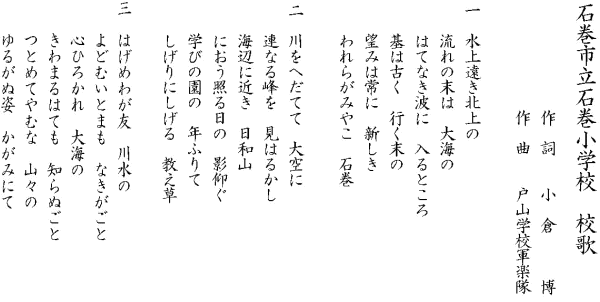 石巻市立石巻小学校　校歌
作詞　小倉　博
作曲　戸山学校軍楽隊
一　水上遠き北上の
流れの末は　大海の
はてなき波に　入るところ
基は古く　行く末の
望みは常に　新しき
われらがみやこ　石巻
二　川をへだてて　大空に
連なる峰を　見はるかし
海辺に近き　日和山
におう照る日の　影仰ぐ
学びの園の　年ふりて
しげりにしげる　教え草
三　はげめわが友　川水の
よどむいとまも　なきがごと
心ひろかれ　大海の
きわまるはても　知らぬごと
つとめてやむな　山々の
ゆるがぬ姿　かがみにて